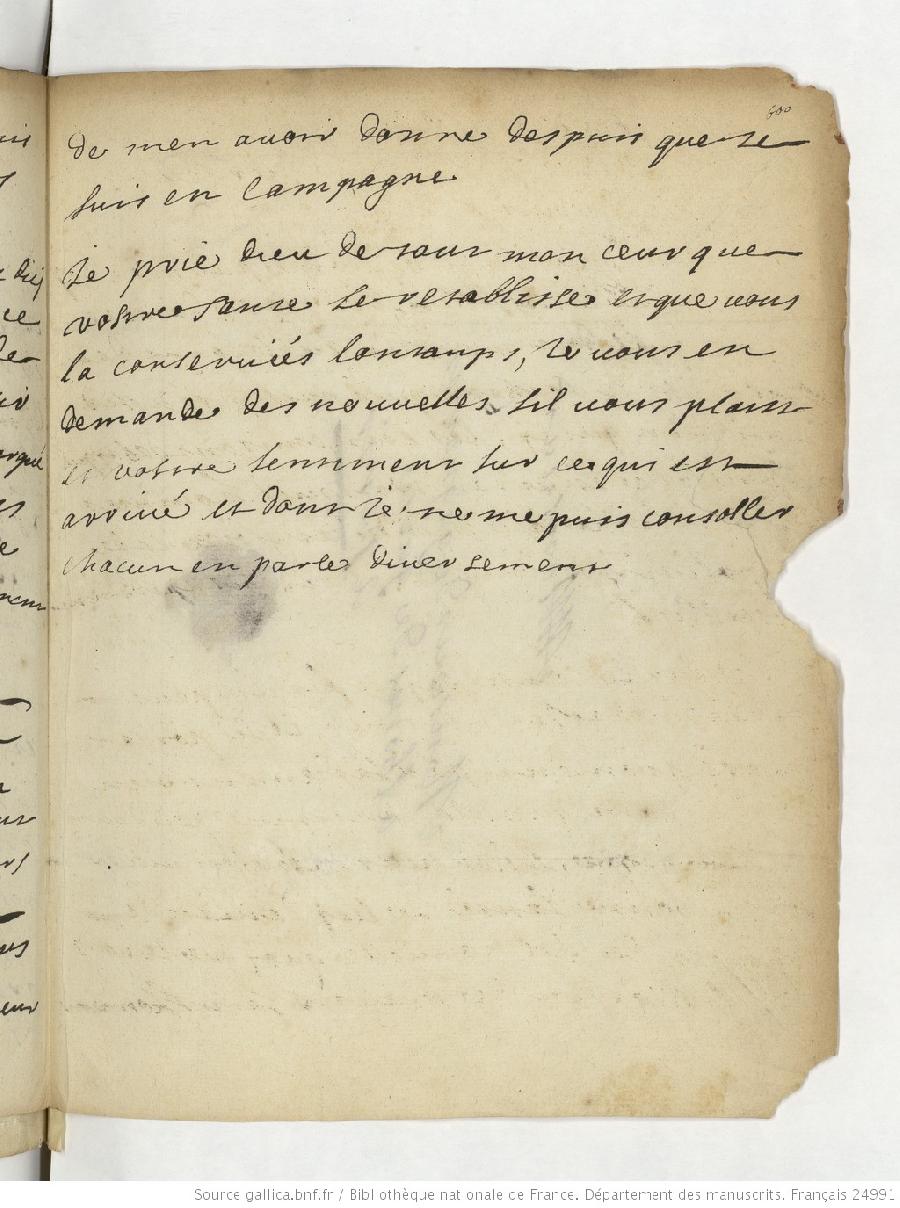 600
de men avoir donne despuis que Je
suis en Campagne
Je prie dieu de tout mon ceur que
vostre sante se restablisse et que vous
la conserviés lontamps, Je vous en
demande des nouvelles sil vous plaist
et vostre sentiment sur ce qui est
arrivé et dont Je ne me puis consoller
chacun en parle diversement
Source gallica.bnf.fr / Bibliothèque nationale de France. Département des manuscrits. Français 24991